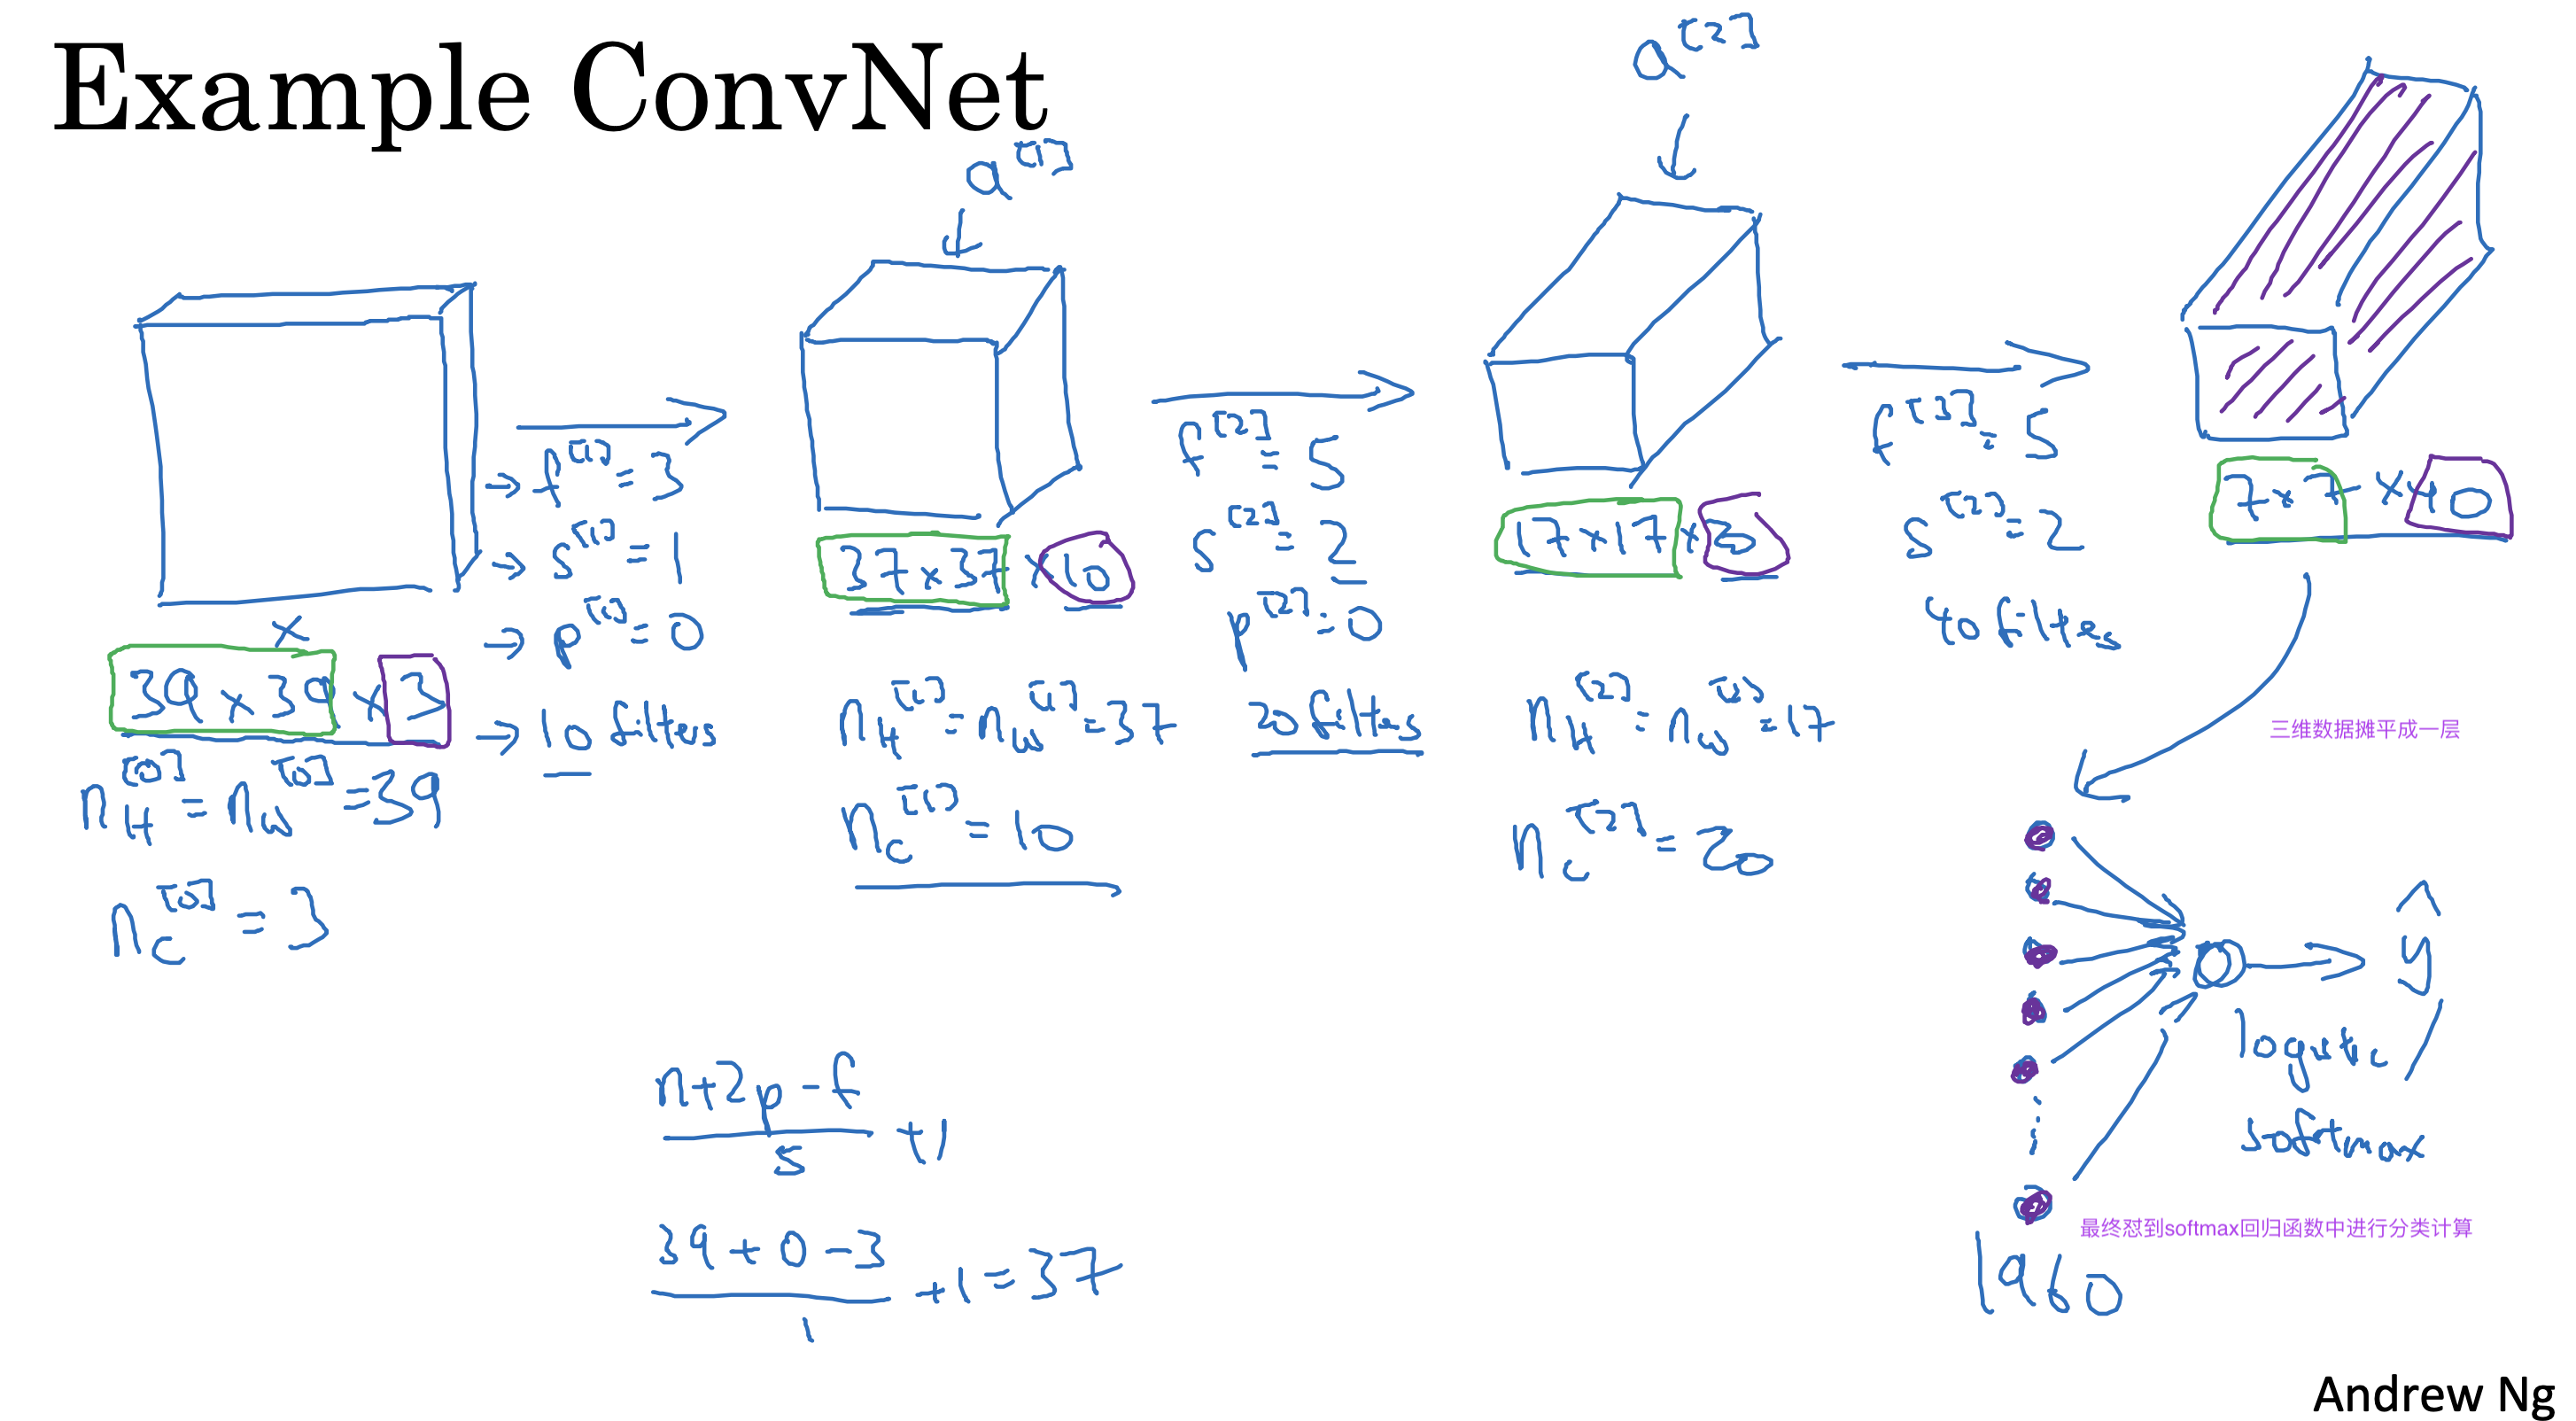 Example ConvNet
a^[1]
a^[2]
x
39 x 39 x 3
n_H^[0] = n_W^[0] = 39
n_C^[0] = 3
→ f^[1] = 3
→ s^[1] = 1
→ p^[1] = 0
→ 10 filters
37 x 37 x 10
n_H^[1] = n_W^[1] = 37
n_C^[1] = 10
f^[2] = 5
s^[2] = 2
p^[2] = 0
20 filters
17 x 17 x 20
n_H^[2] = n_W^[2] = 17
n_C^[2] = 20
f^[3] = 5
s^[2] = 2
40 filters
7 x 7 x 40
三维数据摊平成一层
ŷ
logistic
softmax
最终怼到softmax回归函数中进行分类计算
1960
n+2p-f
s
+1
39 + 0 - 3
1
+1 = 37
Andrew Ng